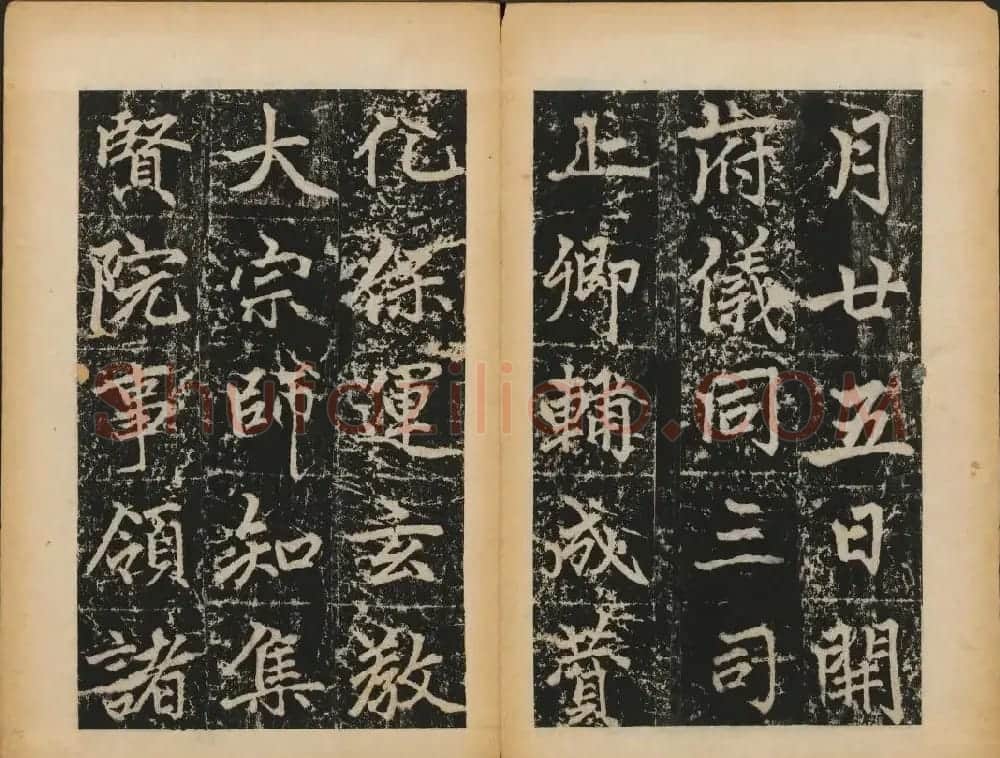 月廿五日開
府儀同三司
上卿輔成贊
化保運玄教
大宗師知集
賢院事領諸
Shufaziliao.COM